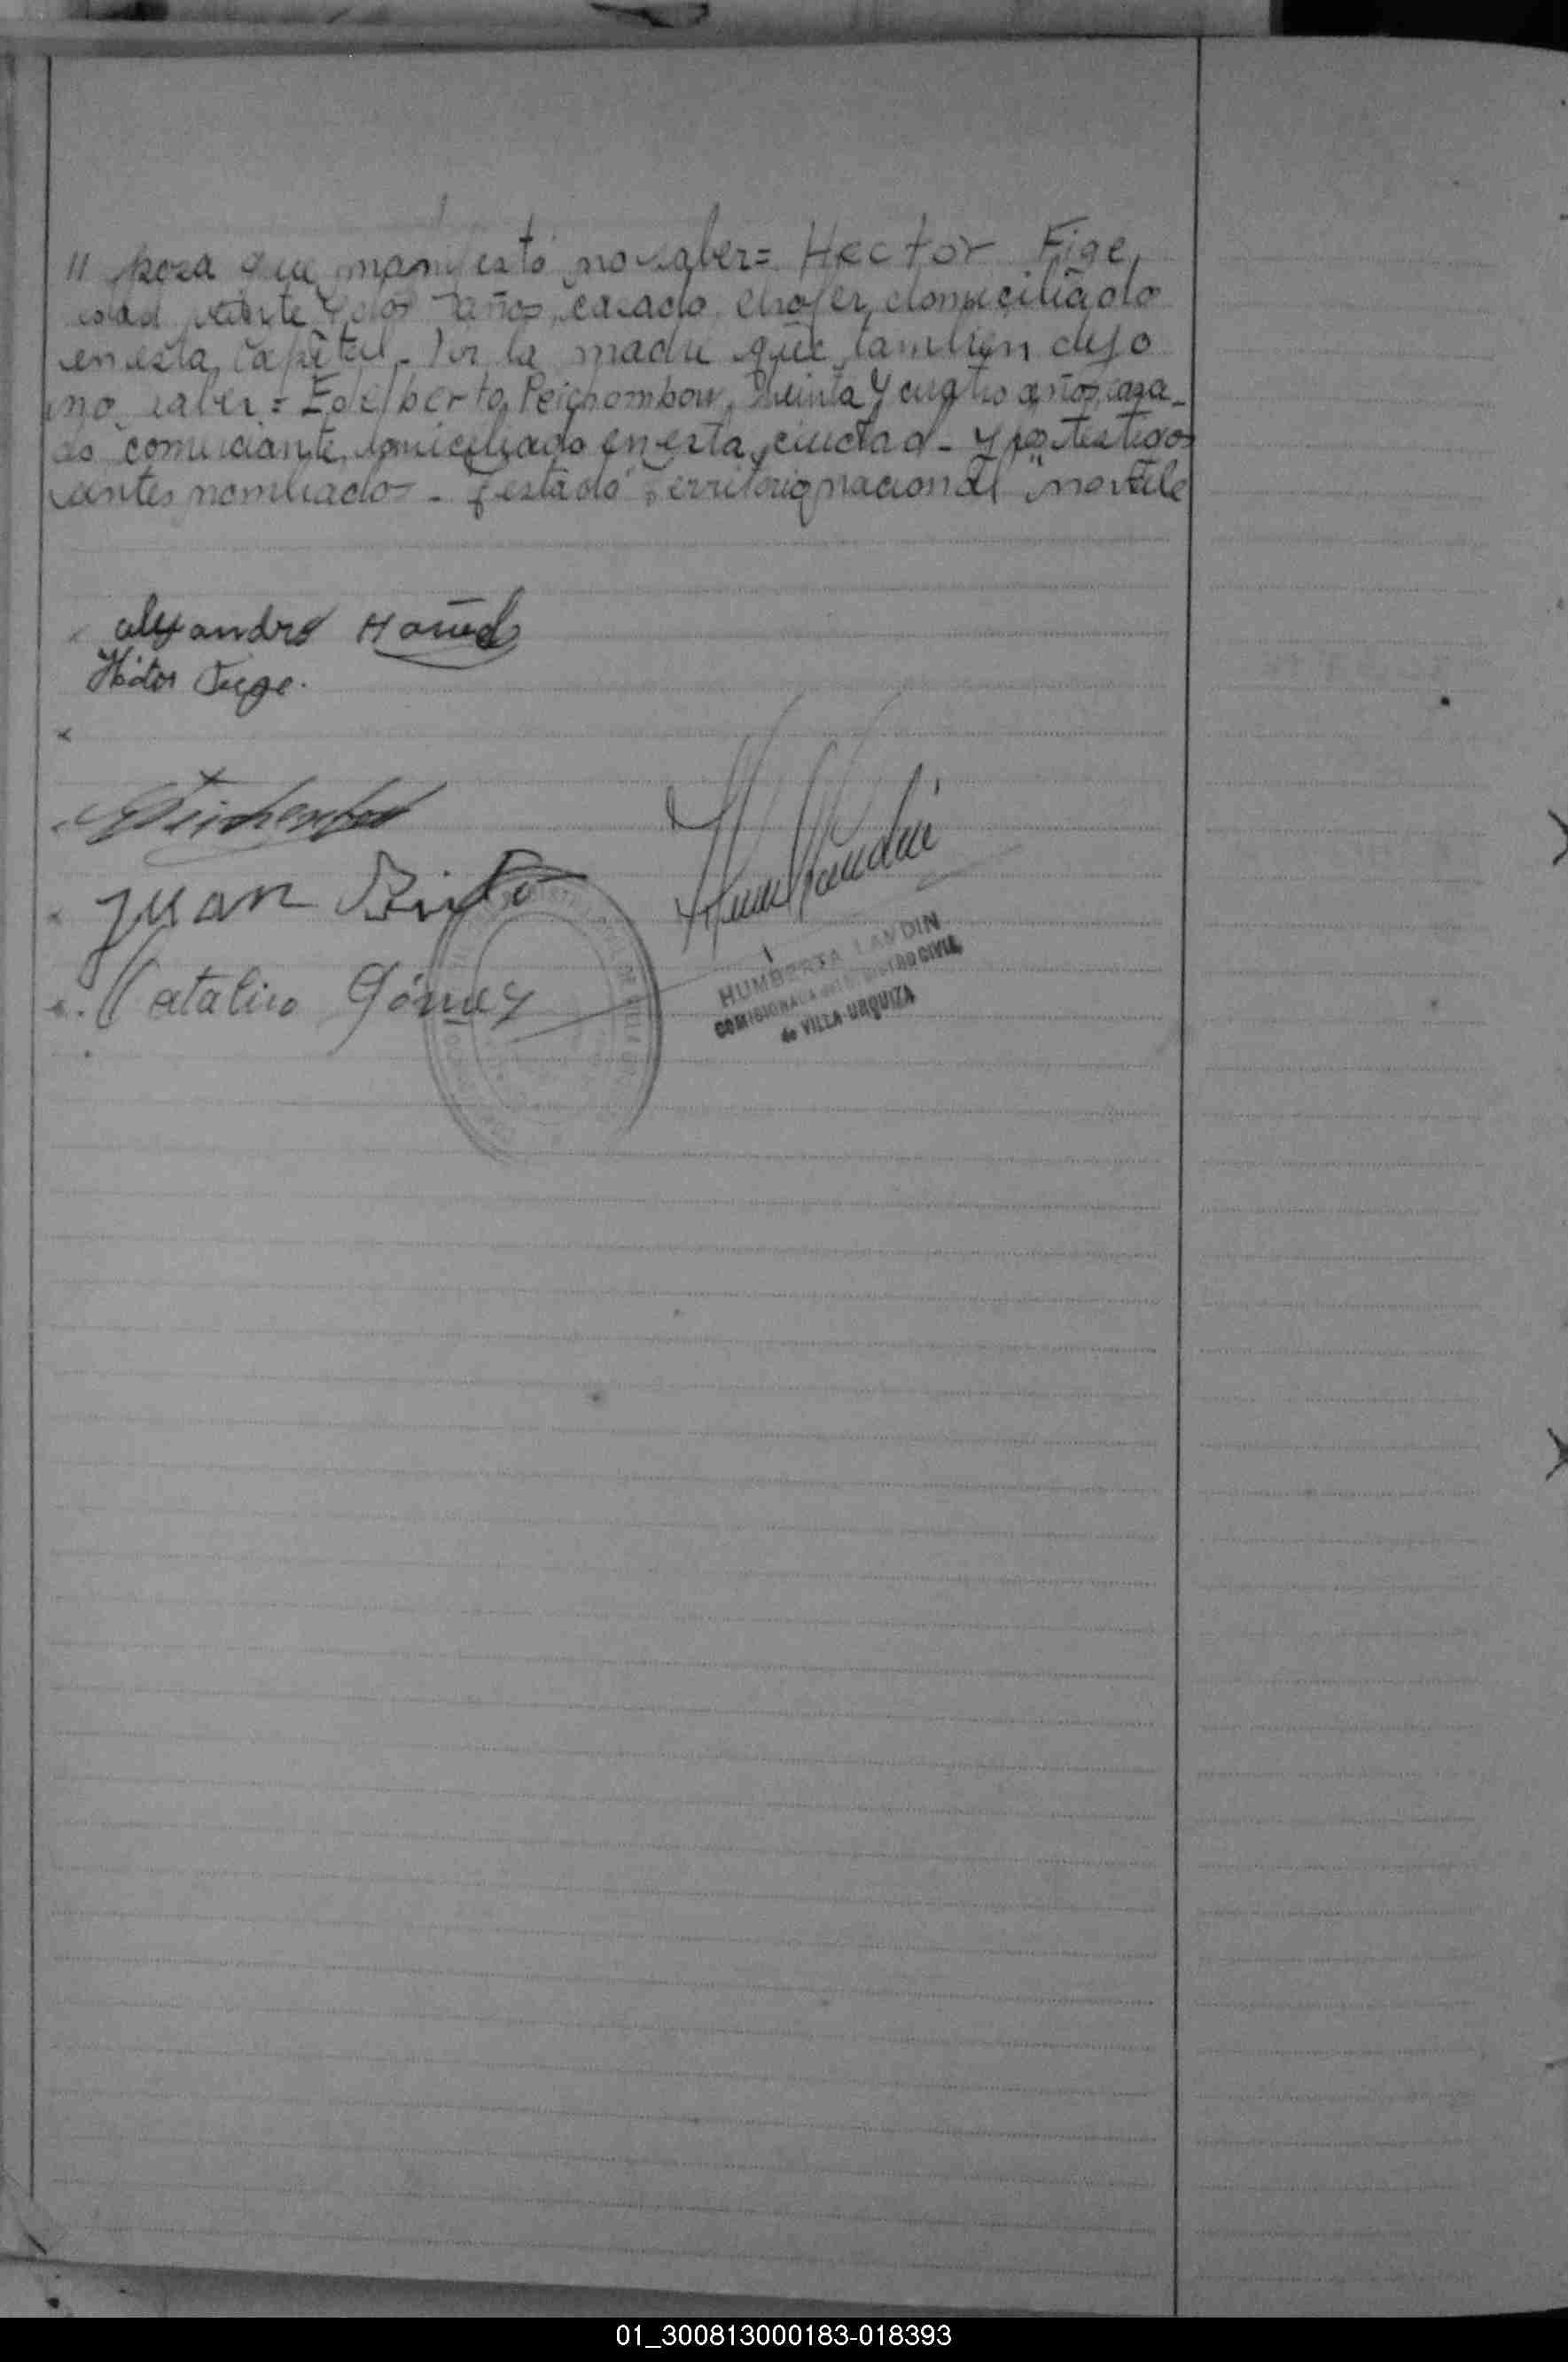 // posa que manifestó no saber = Hector Fige,
edad veinte y dos años, casado, chofer, domiciliado
en esta Capital. Por la madre que tambien dijo
no saber = Edelberto Peichombow, treinta y cuatro años, casa-
do comerciante, domiciliado en esta ciudad - y los testigos
antes nombrados - testado "Territorio nacional" no vale
Alejandro
Hector Fige.
Juan Pinto
Catalino Gómez
HUMBERTA LANDIN
COMISIONADA del REGISTRO CIVIL
de VILLA URQUIZA
01_300813000183-018393